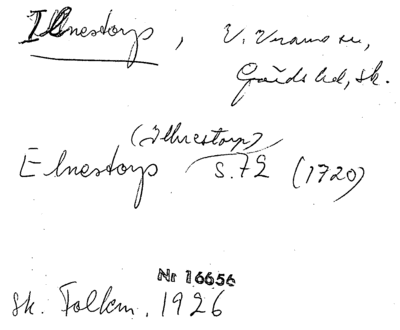 Illnestorp, V. Vram sn,
Gärds hd, sk.
(Illnestorp)
Elnestorp s. 72 (1720)
Nr 16656
sk. Folkm. 1926